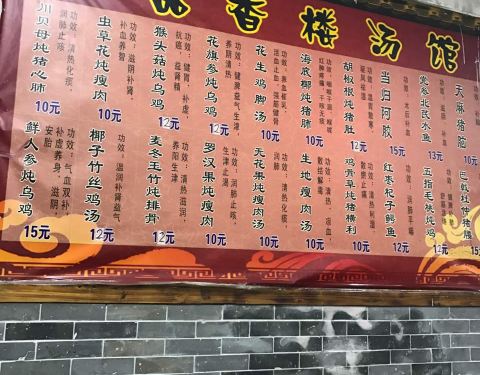 香楼汤馆
川贝母炖猪心肺
功效：清热化痰，润肺止咳
10元
虫草花炖瘦肉
功效：滋阴补肾，补血养智
10元
猴头菇炖乌鸡
功效：健胃，补虚，抗癌，益肾精
12元
花旗参炖乌鸡
功效：清热，养阴清热
12元
花生鸡脚汤
功效：养血催乳，活血止血，强筋健骨
10元
海底椰炖猪肺
10元
胡椒根炖猪肚
功效：温胃散寒，祛风祛湿
12元
当归阿胶
10元
党参北芪水鱼
功效：术后补血
天麻猪脑
10元
鲜人参炖乌鸡
功效：气血双补，补虚养身，滋阴，安胎
15元
椰子竹丝鸡汤
功效：温润补肾益气
12元
麦冬玉竹炖排骨
功效：清热滋润，养阳生津
12元
罗汉果炖瘦肉
功效：润肺止咳，生津止渴
10元
无花果炖瘦肉汤
功效：清热，润肺止咳
10元
生地瘦肉汤
功效：清热，凉血，散结解毒
10元
鸡骨草炖猪横利
10元
红枣杞子鲫鱼
12元
五指毛桃炖鸡
12元
巴戟杜仲猪腰
10元